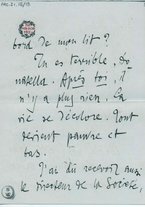 bord de mon lit ?
Tu es terrible, Do-
natella. Après toi, il
n'y a plus rien. La
vie se décolore. Tout
devient pauvre et
bas.
J'ai dû recevoir aussi
le directeur de la Société,